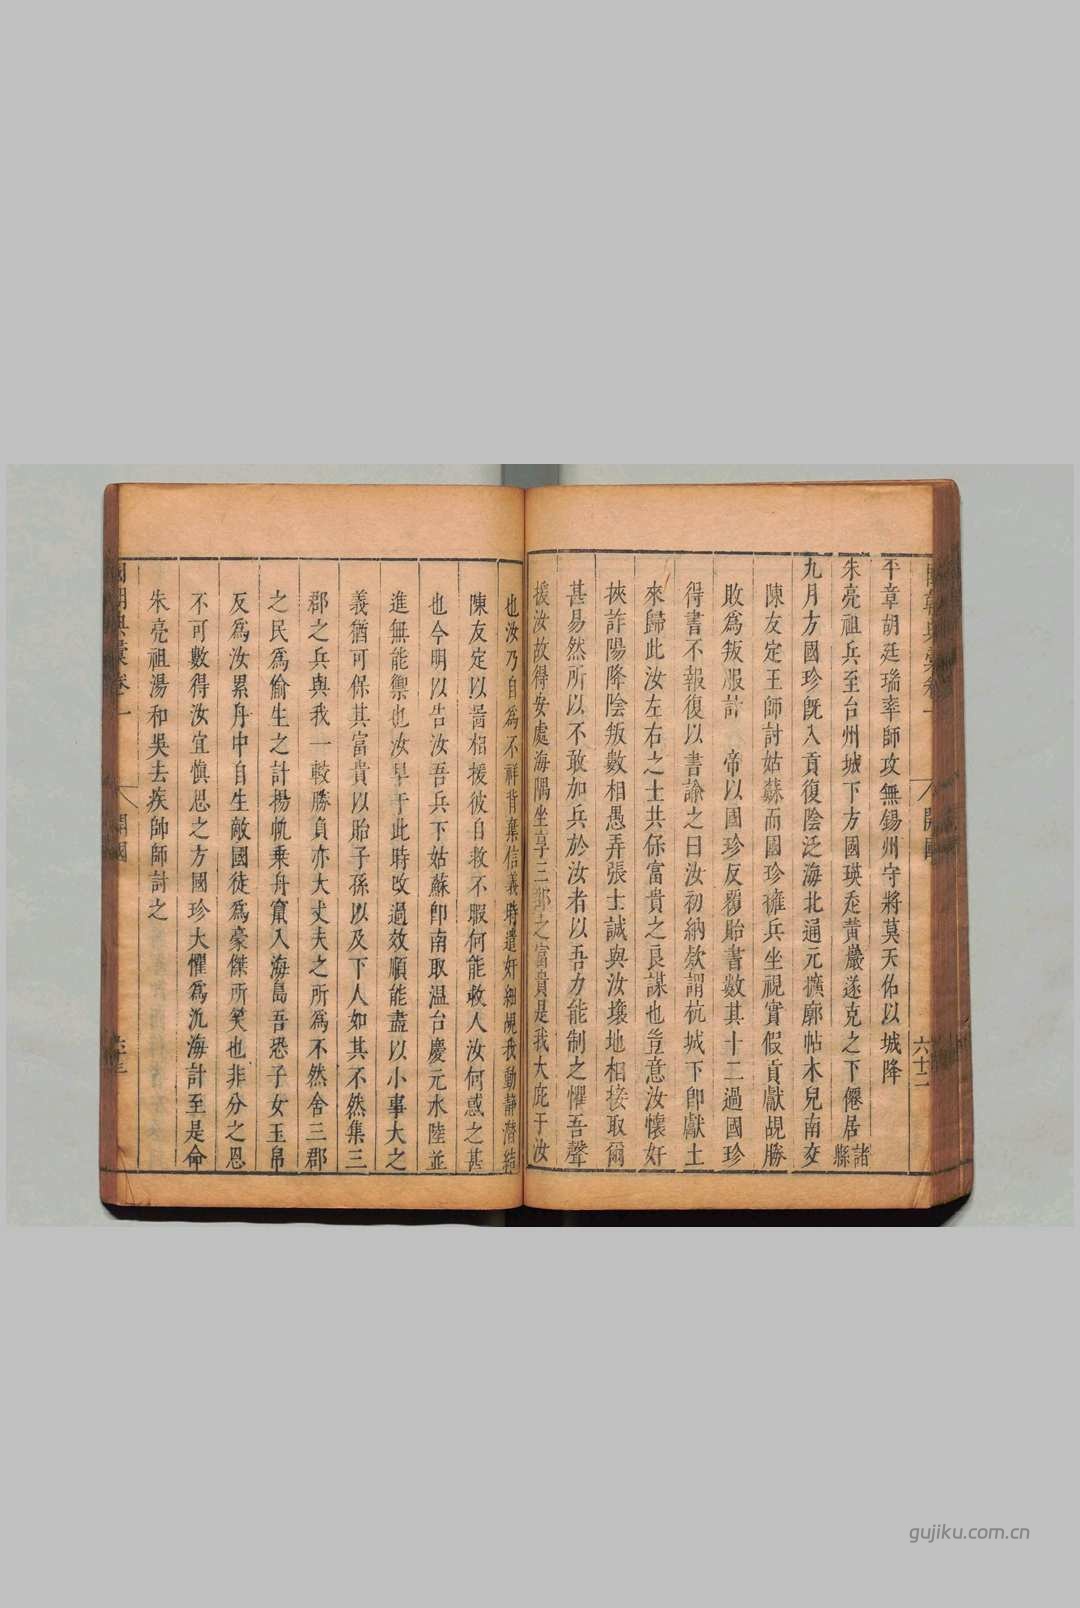 國朝典彙卷一 開國 六十二
平章胡廷瑞率師攻無錫州守將莫天佑以城降
朱亮祖兵至台州城下方國瑛走黃巖遂克之下僊居諸縣
九月方國珍旣入貢復陰泛海北通元擴廓帖木兒南交
陳友定王師討姑蘇而國珍擁兵坐視實假貢獻覘勝
敗爲叛服計 帝以國珍反覆貽書數其十二過國珍
得書不報復以書諭之曰汝初納欵謂杭城下卽獻土
來歸此汝左右之士共保富貴之良謀也豈意汝懷奸
挾詐陽降陰叛數相愚弄張士誠與汝壤地相接取爾
甚易然所以不敢加兵於汝者以吾力能制之懼吾聲
援汝故得安處海隅坐享三郡之富貴是我大庇于汝
也汝乃自爲不祥背棄信義時遣奸細覘我動靜潛結
陳友定以啚相援彼自救不暇何能救人汝何惑之甚
也今明以告汝吾兵下姑蘇卽南取温台慶元水陸並
進無能禦也汝早于此時改過效順能盡以小事大之
義猶可保其富貴以貽子孫以及下人如其不然集三
郡之兵與我一較勝負亦大丈夫之所爲不然舍三郡
之民爲偷生之計揚帆乗舟竄入海島吾恐子女玉帛
反爲汝累舟中自生敵國徒爲豪傑所笑也非分之恩
不可數得汝宜愼思之方國珍大懼爲汎海計至是命
朱亮祖湯和吳去疾師師討之
國朝典彙卷一 開國
gujiku.com.cn